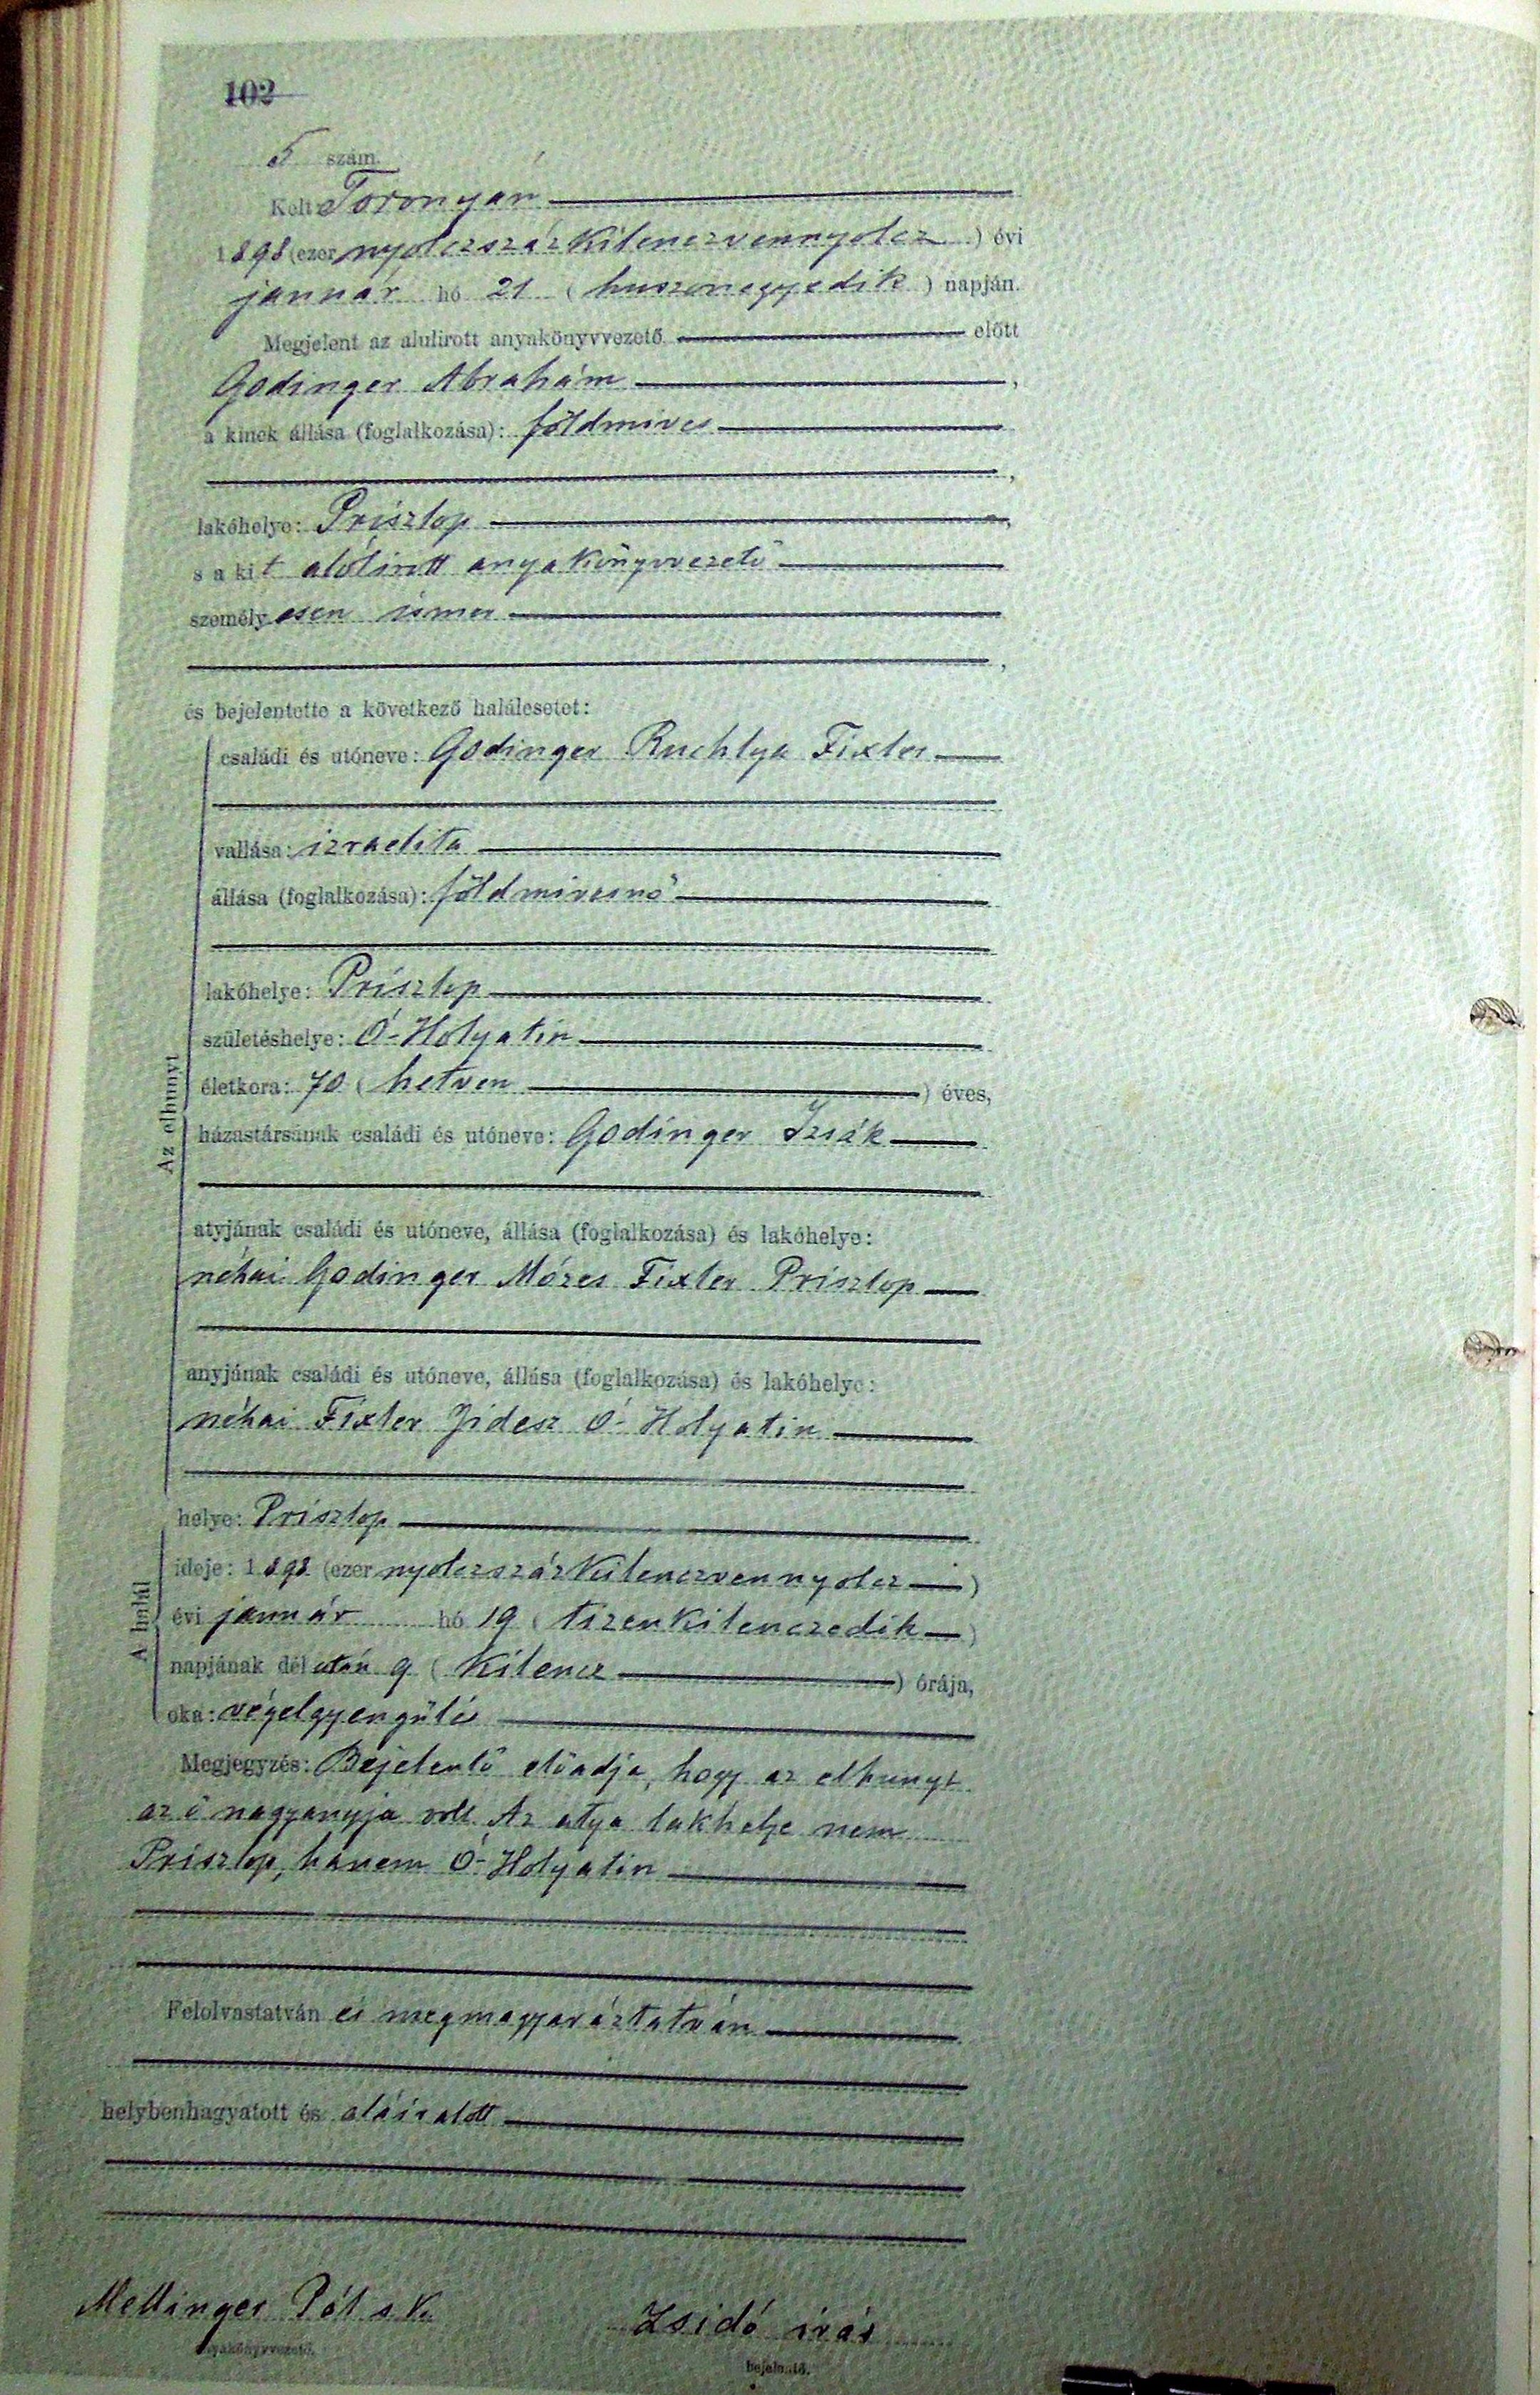 102
5 szám.
Kelt Toronyán
1898 (ezer nyolczszázkilenczvennyolcz) évi
január hó 21 (huszonegyedik) napján.
Megjelent az alulirott anyakönyvvezető előtt
Godinger Abrahám,
a kinek állása (foglalkozása): földmives
,
lakóhelye: Priszlop,
s a kit alólirott anyakönyvvezető
személyesen ismer
,
és bejelentette a következő halálesetet:
Az elhunyt
családi és utóneve: Godinger Ruchlya Fixler
vallása: izraelita
állása (foglalkozása): földmivesnő
lakóhelye: Priszlop
születéshelye: Ó-Holyatin
életkora: 70 (hetven) éves,
házastársának családi és utóneve: Godinger Izsák
atyjának családi és utóneve, állása (foglalkozása) és lakóhelye:
néhai Godinger Mózes Fixler Priszlop
anyjának családi és utóneve, állása (foglalkozása) és lakóhelye:
néhai Fixler Jidesz Ó-Holyatin
A halál
helye: Priszlop
ideje: 1898 (ezer nyolczszázkilenczvennyolcz)
évi január hó 19 (tizenkilenczedik)
napjának délután 9 (kilencz) órája,
oka: végelgyengülés
Megjegyzés: Bejelentő előadja, hogy az elhunyt
az ő nagyanyja volt. Az atya lakhelye nem
Priszlop, hanem Ó-Holyatin
Felolvastatván és megmagyaráztatván
helybenhagyatott és aláiratott
Mellinger Pál s.k. Zsidó irás
anyakönyvvezető. bejelentő.